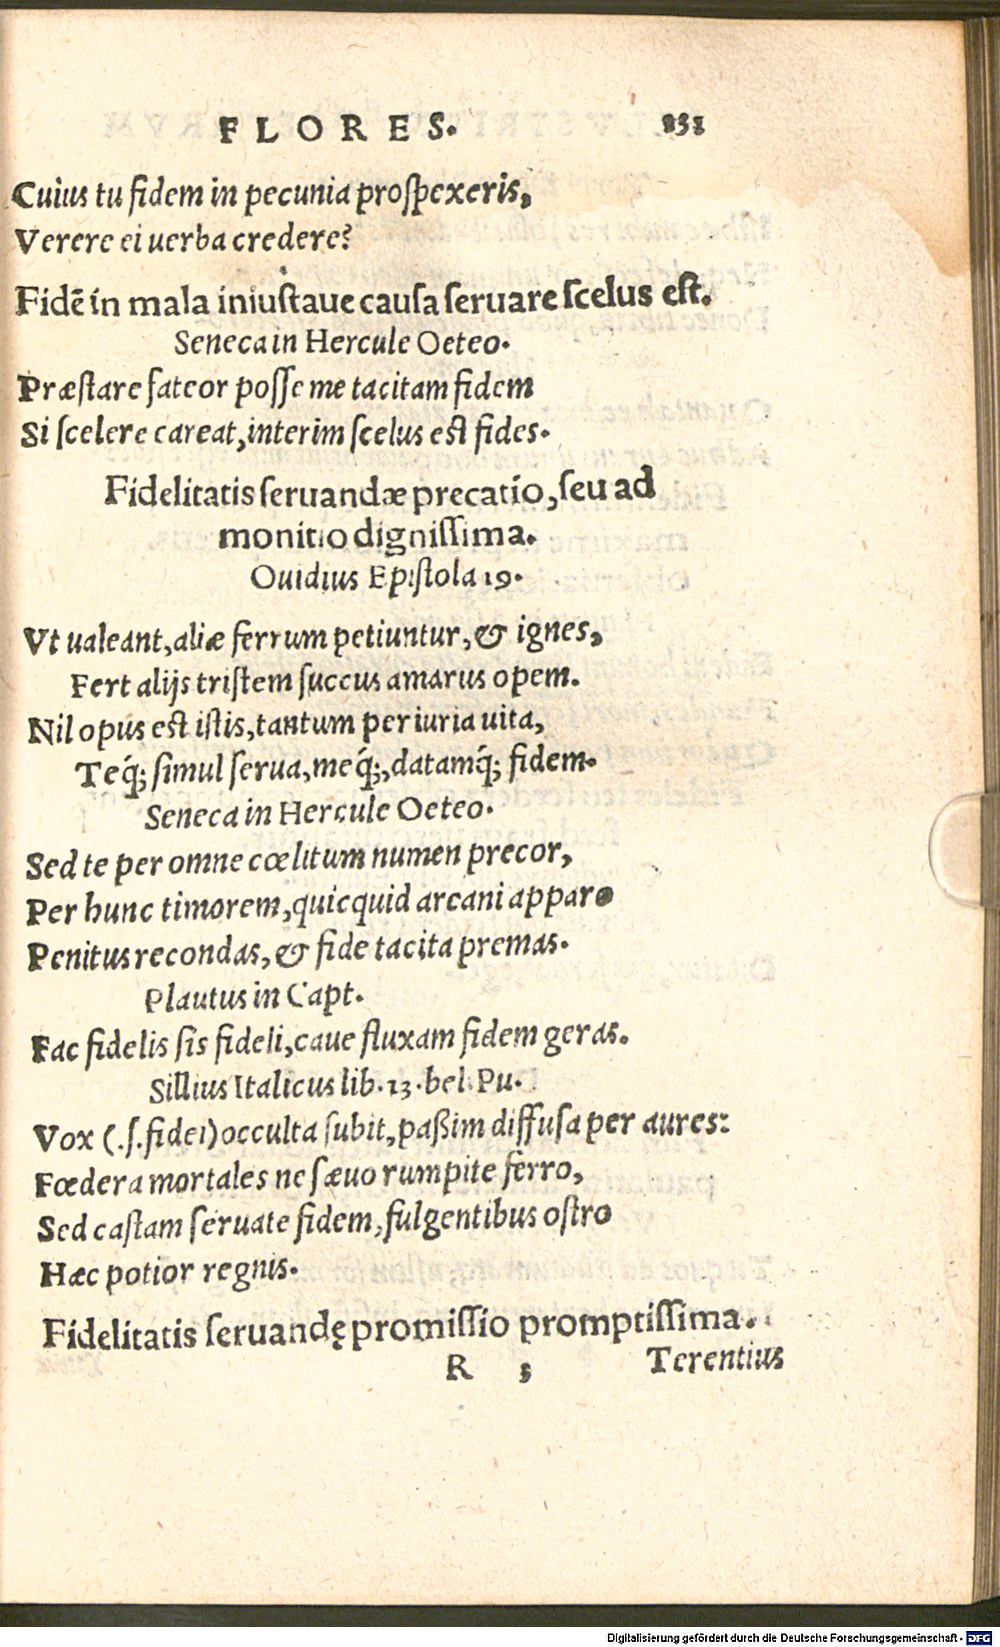 FLORES. 131
Cuius tu fidem in pecunia proſpexeris,
Verere ei uerba credere?
Fidē in mala iniuſtaue cauſa ſeruare ſcelus eſt.
Seneca in Hercule Oeteo.
Præſtare fateor poſſe me tacitam fidem
Si ſcelere careat, interim ſcelus eſt fides.
Fidelitatis ſeruandæ precatio, ſeu ad
monitio digniſſima.
Ouidius Epiſtola 19.
Vt ualeant, aliæ ferrum petiuntur, & ignes,
Fert alijs triſtem ſuccus amarus opem.
Nil opus eſt iſtis, tantum periuria uita,
Teq́; ſimul ſerua, meq́;, datamq́; fidem.
Seneca in Hercule Oeteo.
Sed te per omne cœlitum numen precor,
Per hunc timorem, quicquid arcani apparo
Penitus recondas, & fide tacita premas.
Plautus in Capt.
Fac fidelis ſis fideli, caue fluxam fidem geras.
Sillius Italicus lib. 13. bel. Pu.
Vox (.ſ. fidei) occulta ſubit, paßim diffuſa per aures:
Fœdera mortales ne ſæuo rumpite ferro,
Sed caſtam ſeruate fidem, fulgentibus oſtro
Hæc potior regnis.
Fidelitatis ſeruandę promiſſio promptiſſima.
R 3 Terentius
Digitalisierung gefördert durch die Deutsche Forschungsgemeinschaft - DFG